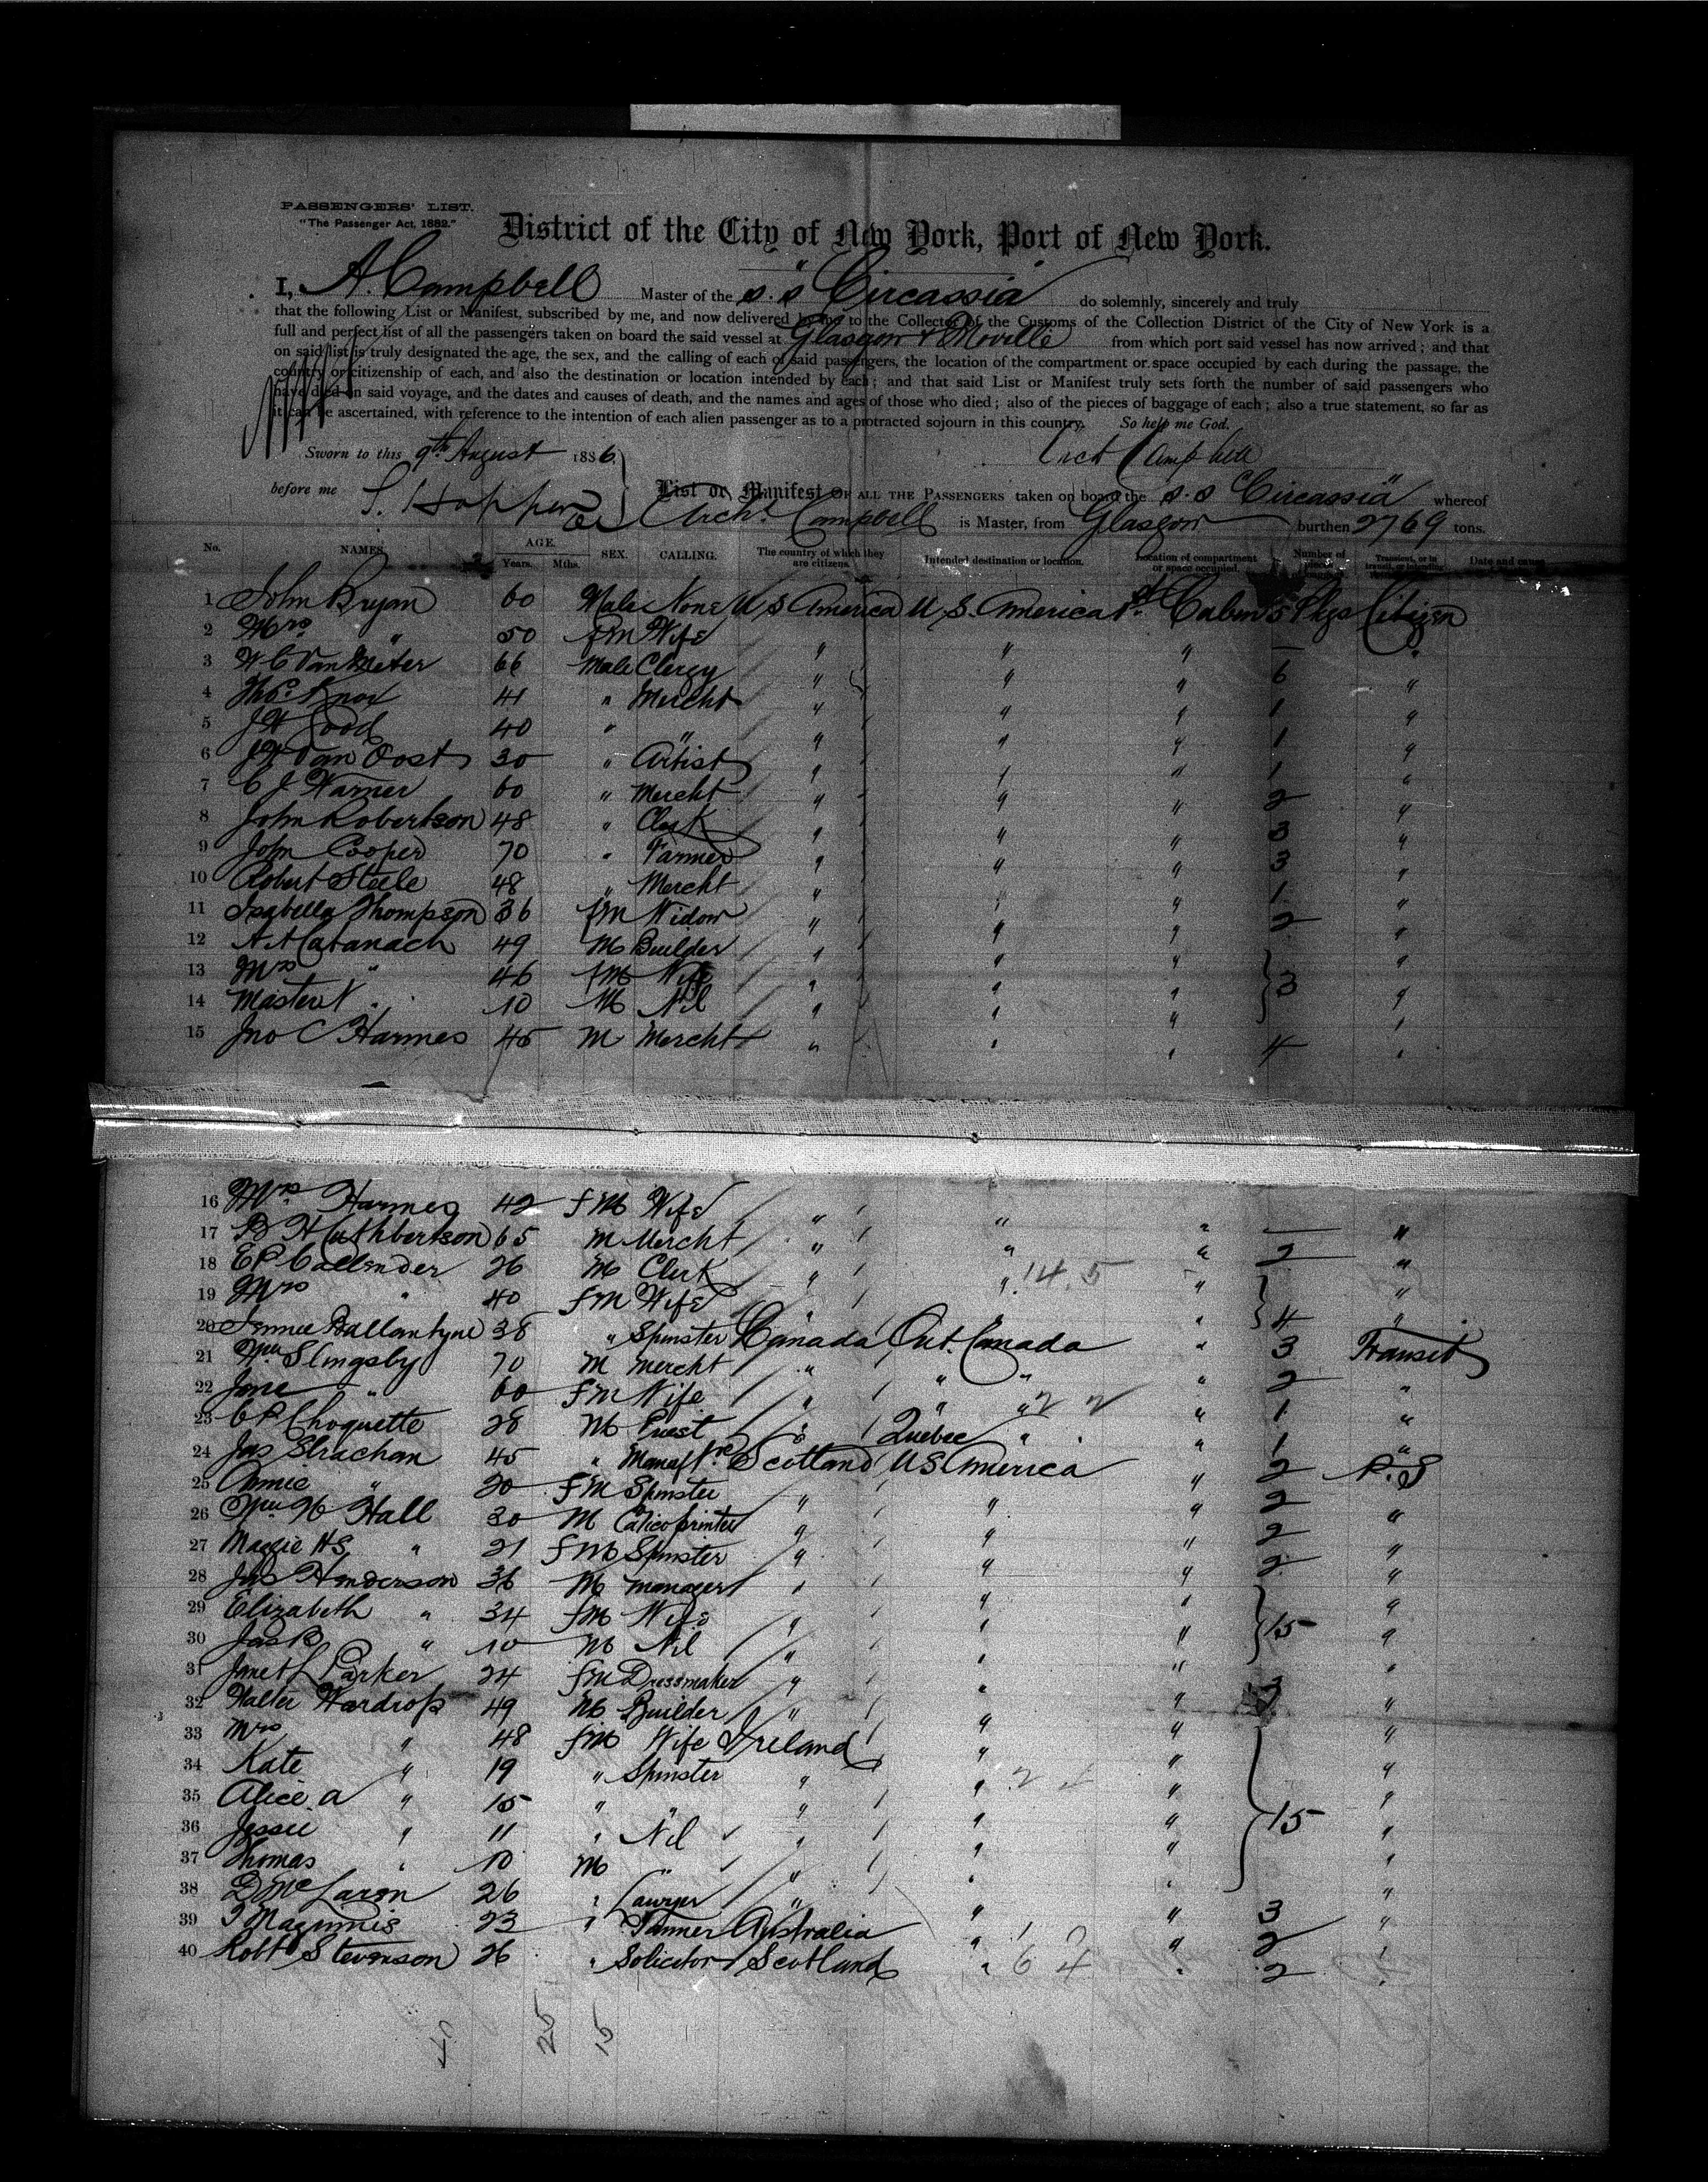 PASSENGERS' LIST.
"The Passenger Act, 1882."
District of the City of New York, Port of New York.
I, A. Campbell Master of the s.s "Circassia" do solemnly, sincerely and truly
that the following List or Manifest, subscribed by me, and now delivered by me to the Collector of the Customs of the Collection District of the City of New York is a
full and perfect list of all the passengers taken on board the said vessel at Glasgow & Moville from which port said vessel has now arrived; and that
on said list is truly designated the age, the sex, and the calling of each of said passengers, the location of the compartment or space occupied by each during the passage, the
country or citizenship of each, and also the destination or location intended by each; and that said List or Manifest truly sets forth the number of said passengers who
have died on said voyage, and the dates and causes of death, and the names and ages of those who died; also of the pieces of baggage of each; also a true statement, so far as
it can be ascertained, with reference to the intention of each alien passenger as to a protracted sojourn in this country. So help me God.
Sworn to this 9th August 1886. Arch Campbell
before me S. Hopper
List or Manifest OF ALL THE PASSENGERS taken on board the s.s "Circassia" whereof
Archd. Campbell is Master, from Glasgow burthen 2769 tons.
No. NAMES. AGE. Years. Mths. SEX. CALLING. The country of which they are citizens. Intended destination or location. Location of compartment or space occupied. Number of Transient, or in transit, Date and cause
1 John Bryan 60 Male None U S America U. S. America 1st Cabin 5 Pkgs Citizen
2 Mrs " 50 fm Wife " " " — "
3 W C Van Meter 66 Male Clergy " " " 6 "
4 Thos. Knox 41 " Mercht " " " 1 "
5 J H Good 40 " " " " " 1 "
6 J H Van Oost 30 " Artist " " " 1 "
7 C J Warner 60 " Mercht " " " 2 "
8 John Robertson 48 " Clerk " " " 3 "
9 John Cooper 70 " Farmer " " " 3 "
10 Robert Steele 48 " Mercht " " " 1 "
11 Isabella Thompson 36 fm Widow " " " 2 "
12 A A Catanach 49 M Builder " " " "
13 Mrs " 46 fm Wife " " " 3 "
14 Master " 10 M Nil " " " "
15 Jno C Harmes 45 M Mercht " " " 4 "
16 Mrs. Harmes 42 fm Wife " " " — "
17 B H Cuthbertson 65 M Mercht " " " 2 "
18 E P Callender 26 M Clerk " " 14 5 " "
19 Mrs " 40 fm Wife " " " 4 "
20 Jennie Ballantyne 38 " Spinster Canada Ont. Canada " 3 Transit
21 Wm Slingsby 70 M Mercht " " " " 2 "
22 Jane " 60 fm Wife " " " 2 2 " 1 "
23 C P Choquette 28 M Priest " Quebec " " 1 "
24 Jas Strachan 45 " Manuftre Scotland U S America " 2 P. S
25 Annie " 20 fm Spinster " " " 2 "
26 Wm H Hall 30 M Calico printer " " " 2 "
27 Maggie H S " 21 fm Spinster " " " 2 "
28 Jas Henderson 36 M Manager " " " "
29 Elizabeth " 34 fm Wife " " " 15 "
30 Jas B " 10 M Nil " " " "
31 Janet L Parker 24 fm Dressmaker " " " 3 "
32 Walter Wardrop 49 M Builder " " " "
33 Mrs " 48 fm Wife Ireland " " "
34 Kate " 19 " Spinster " " " "
35 Alice. A " 15 " " " " " 15 "
36 Jessie " 11 " Nil " " " "
37 Thomas " 10 M " " " " "
38 D McLaren 26 " Lawyer " " " 3 "
39 J Maginnis 23 " Tanner Australia " " 2 "
40 Robt Stevenson 26 " Solicitor Scotland " 6 4 " 2 "
40 25 15